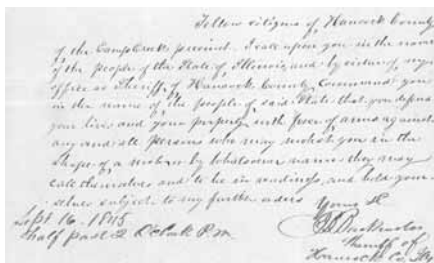 Fellow citizens of Hancock County
of the Camp Creek precinct. I call upon you in the name
of the people of the State of Illinois, and by virtue of my
office as Sheriff of Hancock County Command you
in the name of the people of said State that you defend
your lives and your property with force of arms against
any and all persons who may molest you in the
shape of a mob or by whatsoever name they may
call themselves and to be in readiness, and hold your
selves subject to my further orders
Yours &c
Sept 16. 1845
half past 2 O Clock P.M.
J B Backenstos
Sheriff of
Hancock Co. Ills